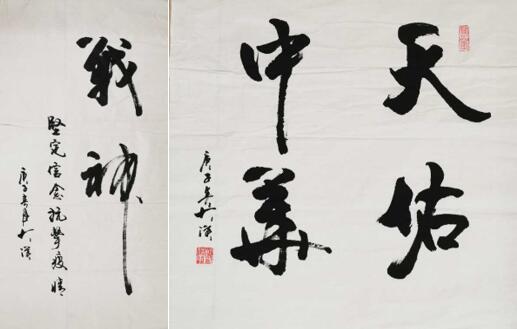 戰神
堅定信念抗擊疫情
庚子春月
天佑
中華
庚子春